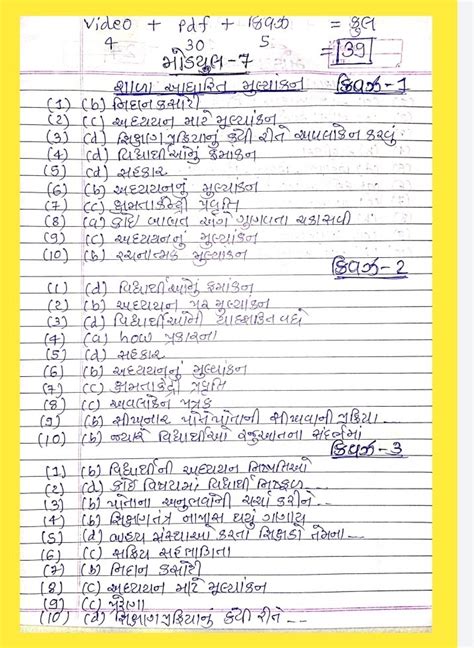 video + pdf + ક્વિઝ = કુલ
4 30 5 = 39
મોડ્યુલ-7
શાળા આધારિત મુલ્યાંકન ક્વિઝ-1
(1) (b) નિદાન કસોટી
(2) (c) અધ્યયન માટે મુલ્યાંકન
(3) (d) શિક્ષણ પ્રક્રિયાનું કેવી રીતે અવલોકન કરવું
(4) (d) વિદ્યાર્થીઓનું ક્રમાંકન
(5) (d) સહકાર
(6) (b) અધ્યયનનું મુલ્યાંકન
(7) (c) ક્ષમતાકેન્દ્રી પ્રવૃત્તિ
(8) (a) કોઈ બાબત અંગે ગુણવત્તા ચકાસવી
(9) (c) અધ્યયનનું મુલ્યાંકન
(10) (b) રચનાત્મક મુલ્યાંકન
ક્વિઝ-2
(1) (d) વિદ્યાર્થીઓનું ક્રમાંકન
(2) (b) અધ્યયન પર મુલ્યાંકન
(3) (d) વિદ્યાર્થીઓની યાદશક્તિ વધે
(4) (a) how પ્રકારના
(5) (d) સહકાર
(6) (b) અધ્યયનનું મુલ્યાંકન
(7) (c) ક્ષમતાકેન્દ્રી પ્રવૃત્તિ
(8) (c) અવલોકન પત્રક
(9) (b) શીખનાર પોતે પોતાની શીખવાની પ્રક્રિયા...
(10) (b) જ્યારે વિદ્યાર્થીઓ રજુઆતના સંદર્ભમાં
ક્વિઝ-3
(1) (b) વિદ્યાર્થીની અધ્યયન નિષ્પત્તિઓ
(2) (d) કોઈ વિષયમાં વિદ્યાર્થી નિષ્ફળ...
(3) (b) પોતાના અનુભવોની ચર્ચા કરીને...
(4) (b) શિક્ષણતંત્ર નાપાસ થયું ગણાય
(5) (d) બાહ્ય સંસ્થાઓ કરતા શિક્ષકો તેમના...
(6) (c) સક્રિય સહભાગિતા
(7) (b) નિદાન કસોટી
(8) (c) અધ્યયન માટે મુલ્યાંકન
(9) (c) પ્રેરણા
(10) (d) શિક્ષણપ્રક્રિયાનું કેવી રીતે...